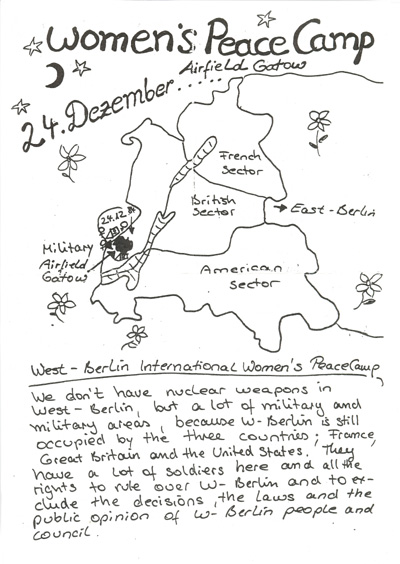 Women's Peace Camp
Airfield Gatow
24. Dezember.....
French
sector
British
sector
→ East-Berlin
24.12.84
Military
Airfield
Gatow
American
sector
West-Berlin International Women's Peace Camp
We don't have nuclear weapons in
West-Berlin, but a lot of military and
military areas, because W-Berlin is still
occupied by the three countries; France,
Great Britain and the United States. They
have a lot of soldiers here and all the
rights to rule over W-Berlin and to ex-
clude the decisions, the laws and the
public opinion of W-Berlin people and
council.